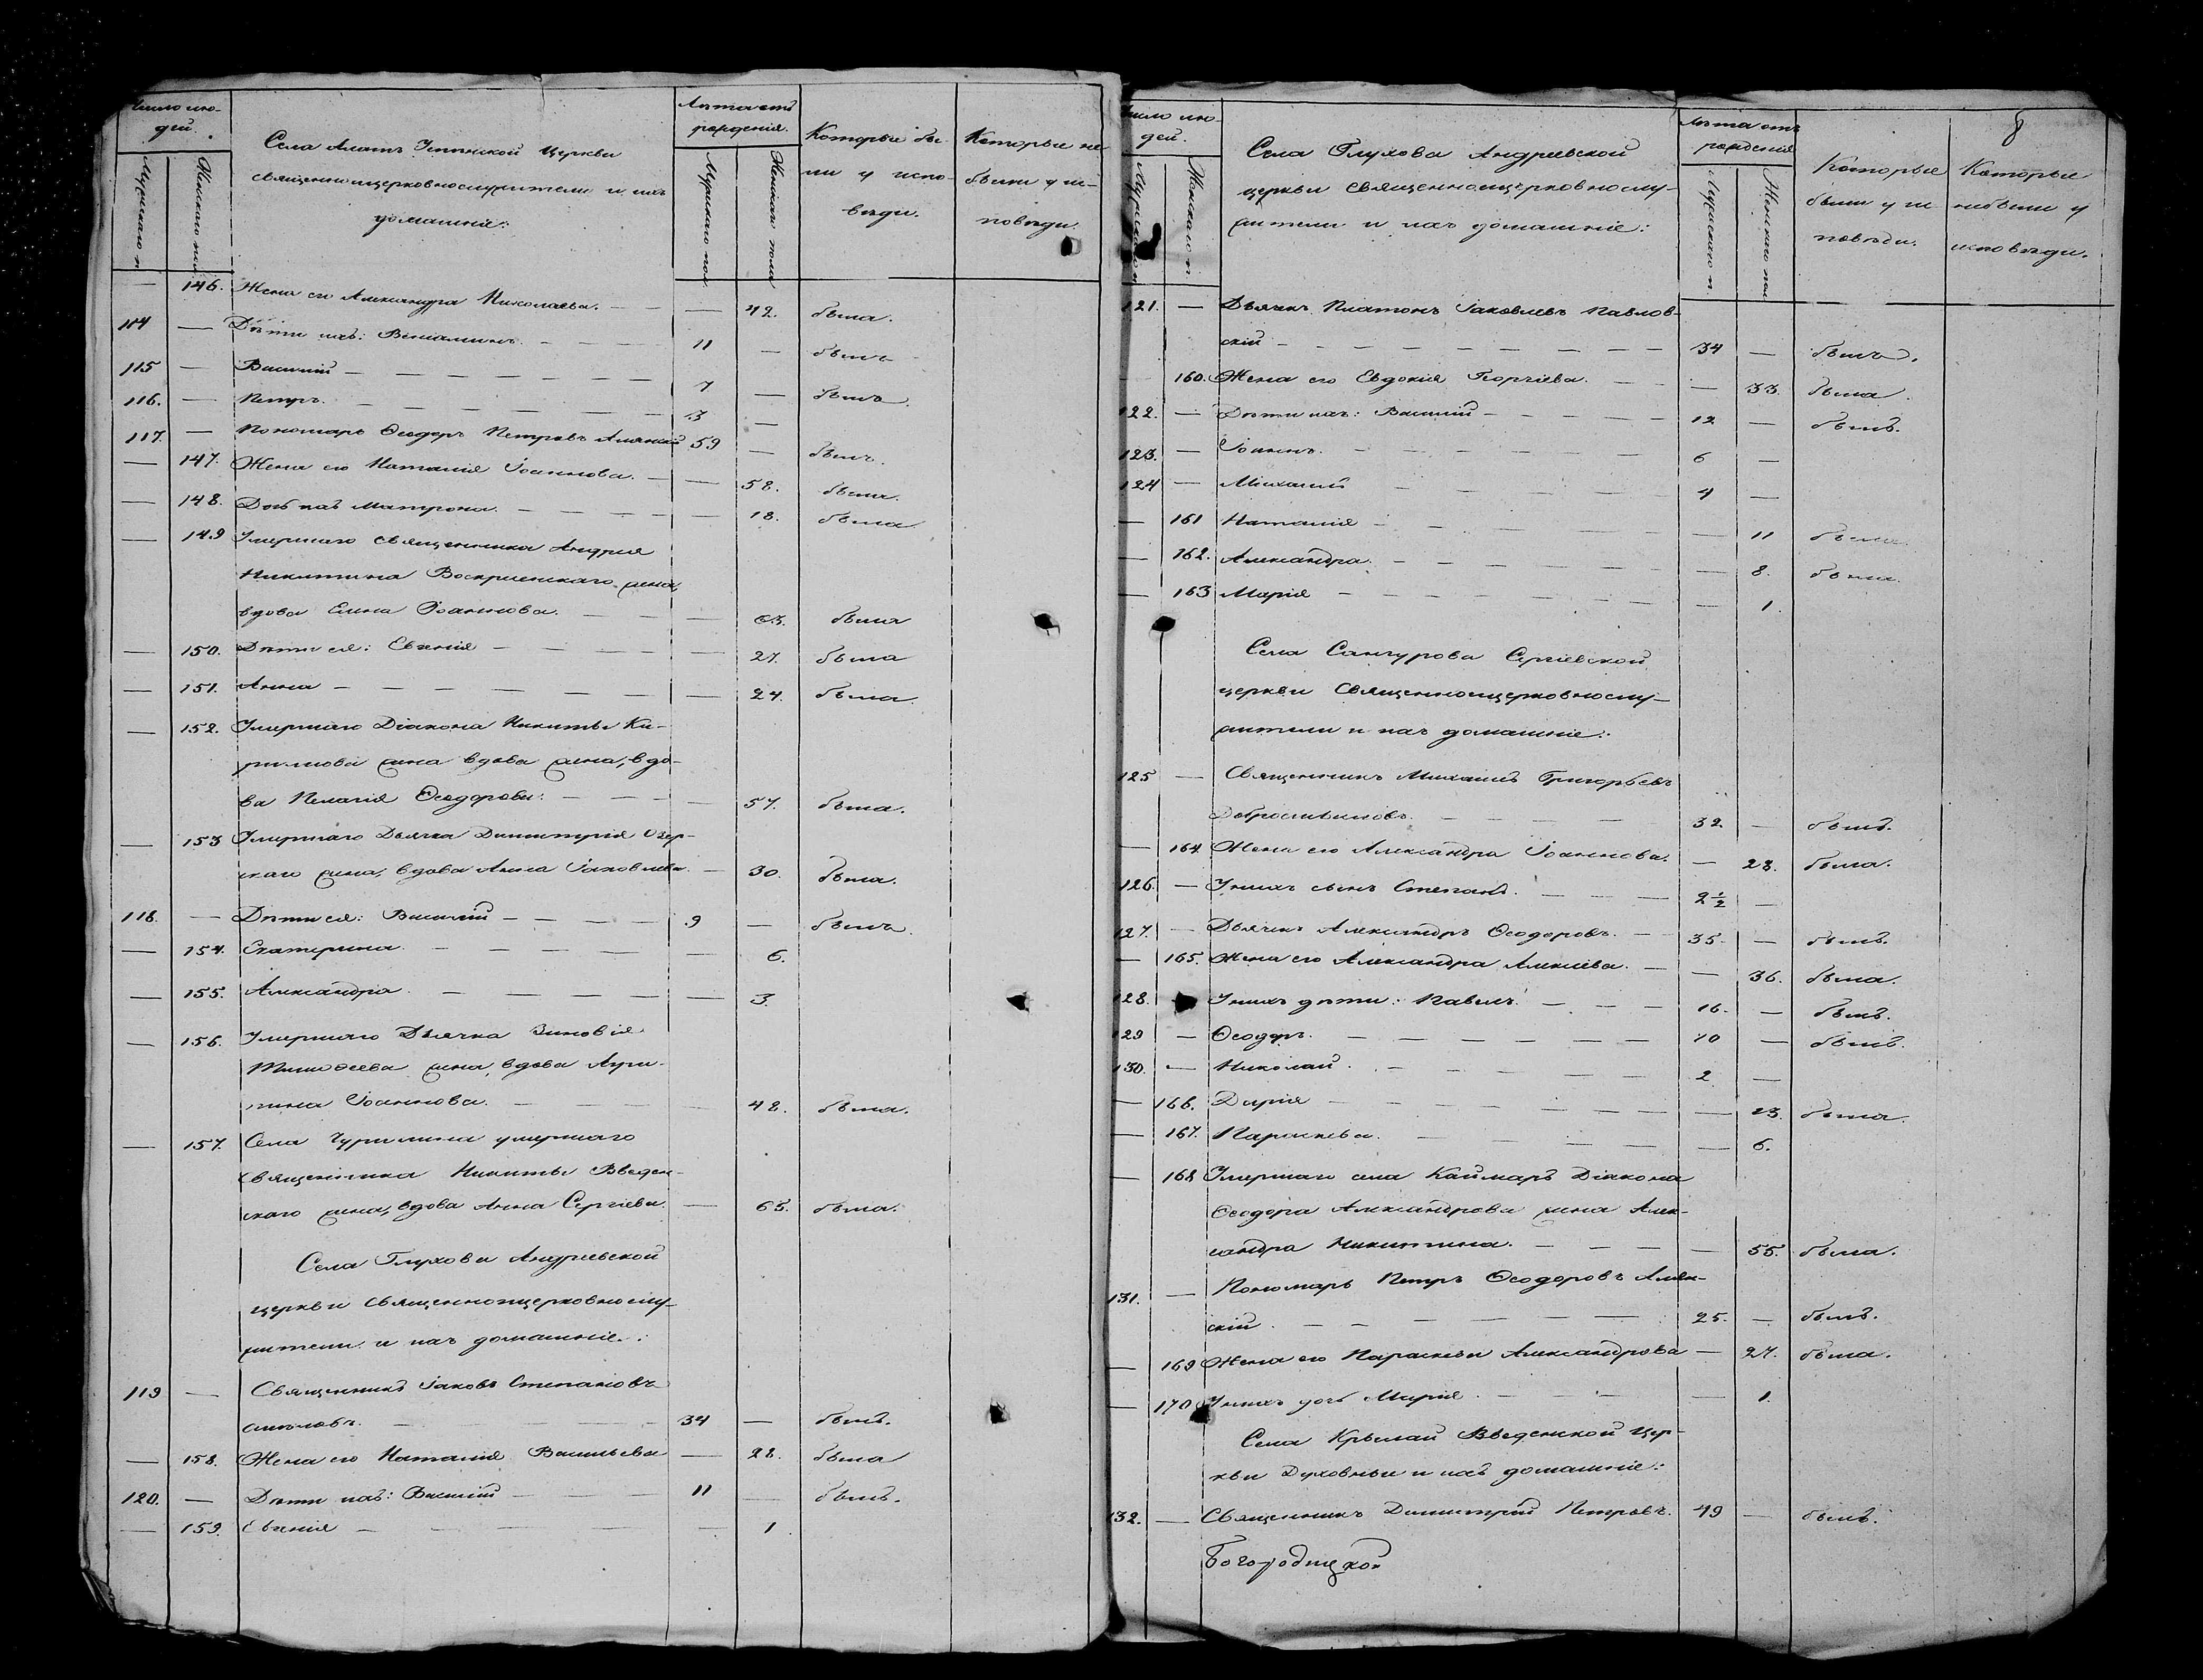 Число лю-
дей.
Мужскаго п.
Женскаго пол.
Села Алатъ Успенской Церкви
священноицерковнослужители и ихъ
домашніе:
Лѣта отъ
рожденія.
Мужскаго пол
Женскаго пола
Которые бы-
ли у испо-
вѣди.
Которые не
были у ис-
повѣди.
— 146. Жена его Александра Николаева. — — 42. была.
114 — Дѣти ихъ: Веніаминъ. — — 11 — былъ
115 — Василій — — — 7 — былъ.
116. — Петръ. — — — 3 —
117. — Пономарь Ѳеодоръ Петровъ 59 — былъ.
— 147. Жена его Наталія Іоаннова. — — 58. была.
— 148. Дочь ихъ Матрона. — — — 18. была
— 149 Умершаго священника Андрея
Никитина Воскресенскаго жена,
вдова Елена Іоаннова. — — 63. была
— 150. Дѣти ея: Евгенія — — — 27. была
— 151. Анна — — — — 24. была.
— 152. Умершаго Діакона Никиты Ки-
рилова жена вдова жена, вдо-
ва Пелагія Ѳеодорова. — — 57. была.
— 153 Умершаго Дьячка Димитрія Озер-
скаго жена, вдова Анна Іаковлева. — 30. была.
118. — Дѣти ея: Василій — — — 9 — былъ.
— 154. Екатерина. — — — — 6.
— 155. Александра. — — — — 3.
— 156. Умершаго Дьячка Зиновія
Тимоѳеева жена, вдова Агри-
пина Іоаннова. — — 48. была.
— 157. Села Чурилина умершаго
священника Никиты Введен-
скаго жена, вдова Анна Сергіева. — 65. была.
Села Глухова Андреевской
церкви священноицерковнослу-
жители и ихъ домашніе:
119 — Священникъ Іаковъ Степановъ
— 34 — былъ.
— 158. Жена его Наталія Васильева — 28. была
120. — Дѣти ихъ: Василій — — 11 — былъ.
— 159. Евгенія — — — — 1.
8
Число лю-
дей.
Мужскаго п.
Женскаго п.
Села Глухова Андреевской
церкви священноицерковнослу-
жители и ихъ домашніе:
Лѣта отъ
рожденія
Мужскаго п.
Женскаго пол
Которые
были у ис-
повѣди.
Которые
небыли у
исповѣди.
121. — Дьячекъ Платонъ Іаковлевъ Павлов-
скій — — — 34 — былъ.
160. Жена его Евдокія Георгіева. — — 33. была.
122. — Дѣти ихъ: Василій — — — 12 — былъ.
123. — Іоаннъ. — — — 6 —
124 — Михаилъ — — — 4 —
— 161 Наталія — — — — 11 была.
— 162. Александра. — — — — 8. была.
— 163 Марія — — — — 1.
Села Сангурова Сергіевской
церкви Священноицерковнослу-
жители и ихъ домашніе:
125 — Священникъ Михаилъ Григорьевъ
Добросмысловъ. — — 32. — былъ.
— 164. Жена его Александра Іоаннова. — 28. была.
126. — У нихъ сынъ Степанъ. — — 2½ —
127. — Дьячекъ Александръ Ѳеодоровъ. — 35. — былъ.
— 165. Жена его Александра Алексіева. — — 36. была.
128. У нихъ дѣти: Павелъ. — — 16. — былъ.
129 — Ѳеодоръ. — — — 10 — былъ.
130. — Николай. — — — 2. —
— 166. Дарія — — — — 13. была.
— 167. Параскева. — — — — 6.
— 168 Умершаго села Каймаръ Діакона
Ѳеодора Александрова жена Алек-
сандра Никитина. — — 55. была.
131. — Пономарь Петръ Ѳеодоровъ
скій. — — — 25. — былъ.
— 169 Жена его Параскева Александрова — 27. была.
— 170 У нихъ дочь Марія. — — — 1.
Села Крылай Введенской Цер-
кви Духовные и ихъ домашніе:
132. — Священникъ Димитрій Петровъ. 49 — былъ.
Богородицкой